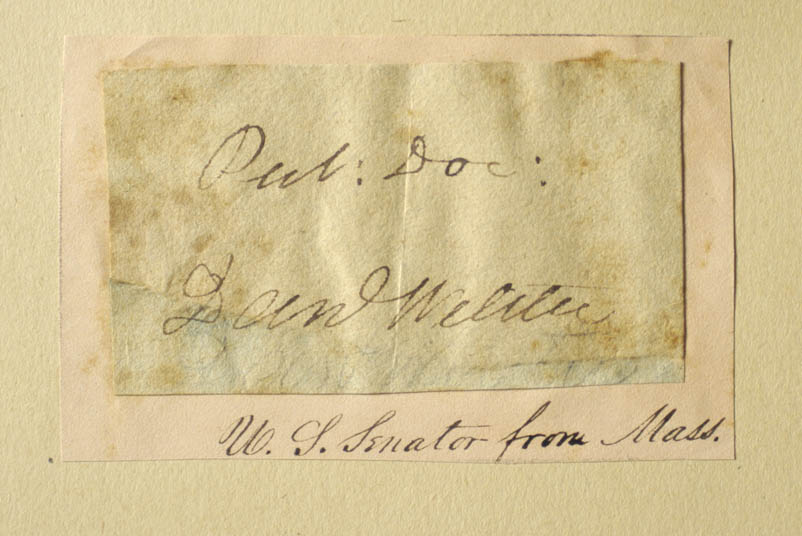 Pub: Doc:
Danl Webster
U. S. Senator from Mass.